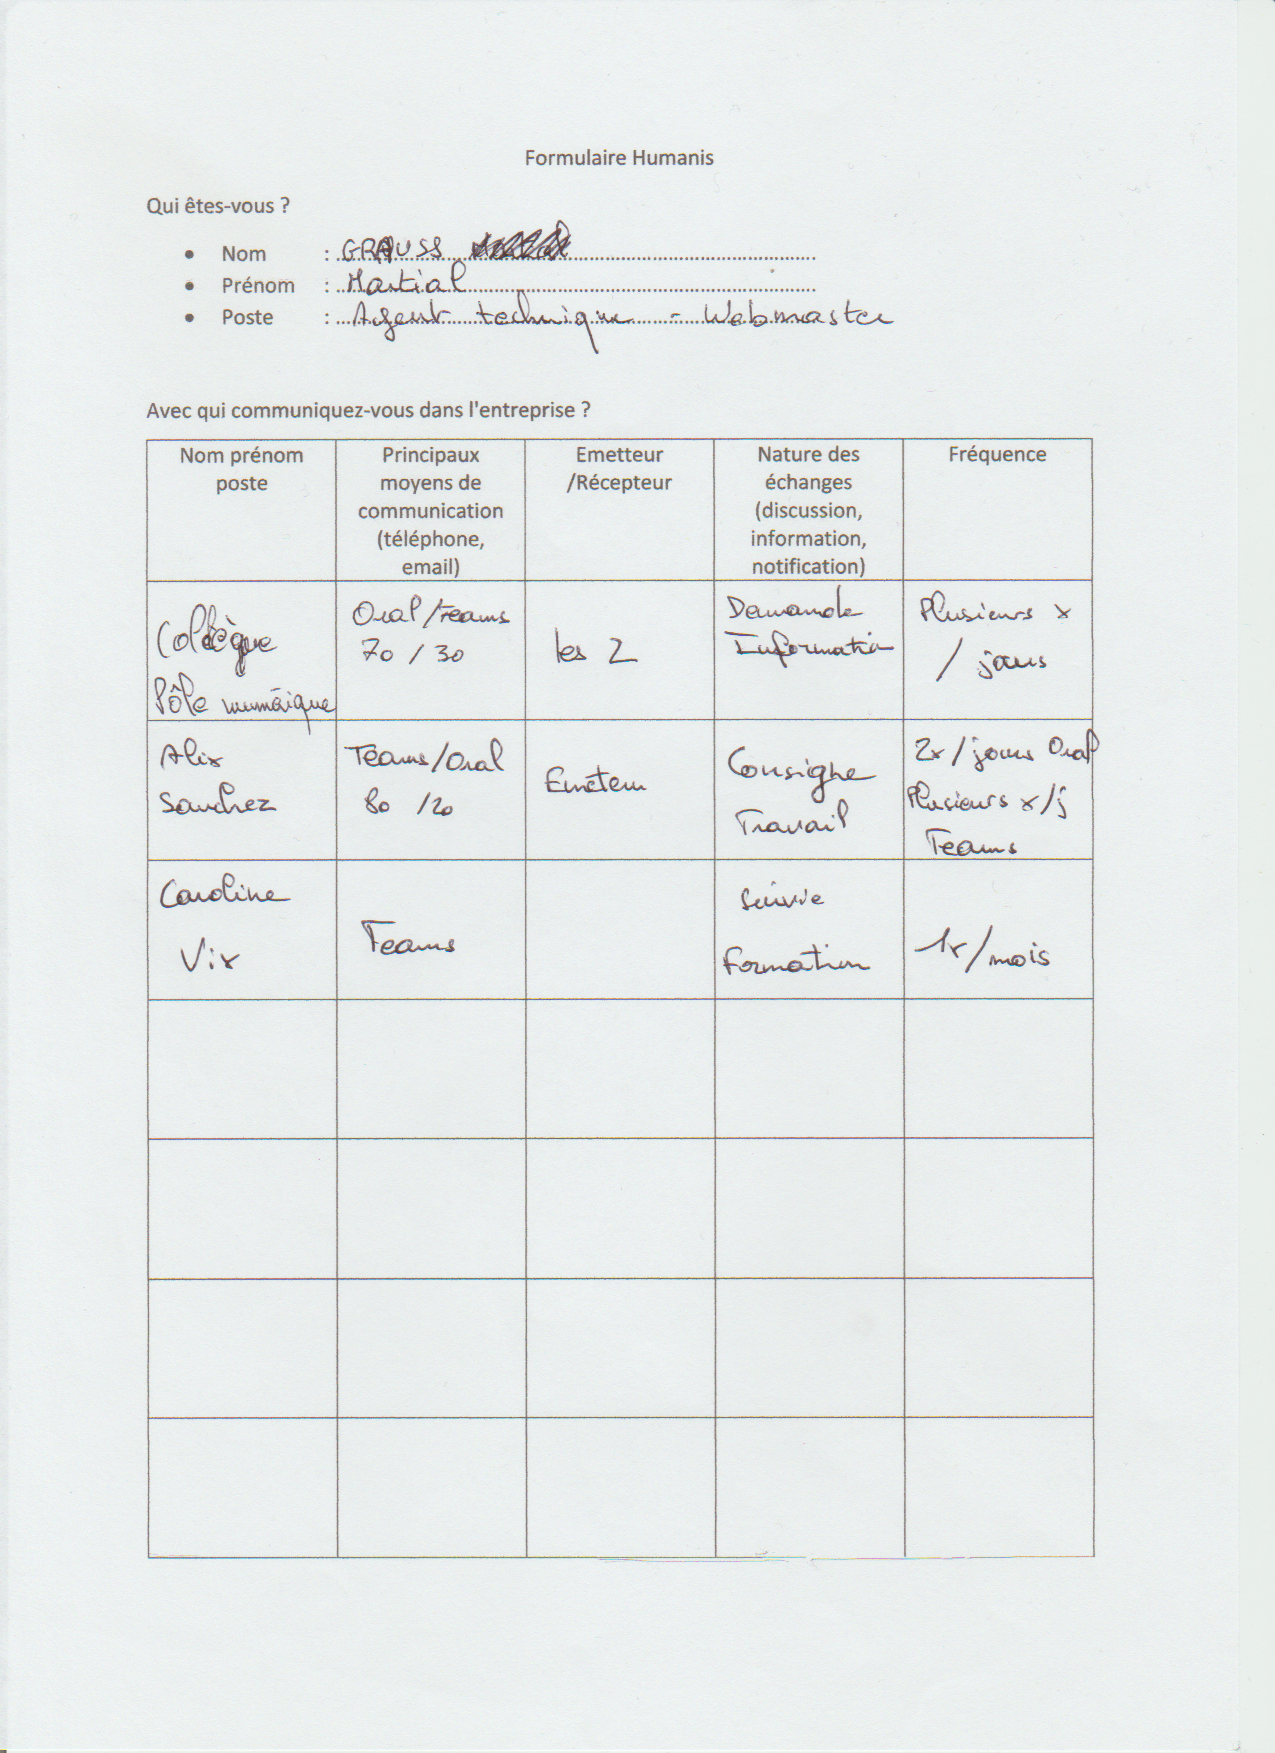 Formulaire Humanis
Qui êtes-vous ?
• Nom : GRAUSS
• Prénom : Martial
• Poste : Agent technique - Webmaster
Avec qui communiquez-vous dans l'entreprise ?
Nom prénom
poste
Principaux
moyens de
communication
(téléphone,
email)
Emetteur
/Récepteur
Nature des
échanges
(discussion,
information,
notification)
Fréquence
Collègue
Pôle numérique
Oral/Teams
70 / 30
les 2
Demande
Information
Plusieurs x
/ jours
Alix
Sanchez
Teams/Oral
80 /20
Emetteur
Consigne
Travail
2x/jours Oral
Plusieurs x/j
Teams
Caroline
Vix
Teams
Suivie
Formation
1x/mois